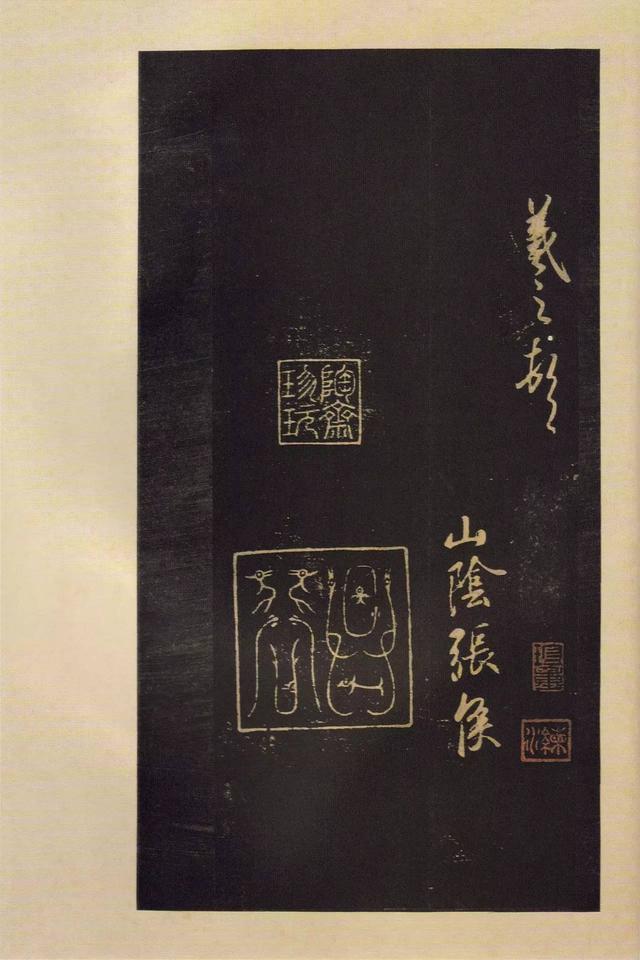 羲之頓首
山陰張侯
陶齋珍玩